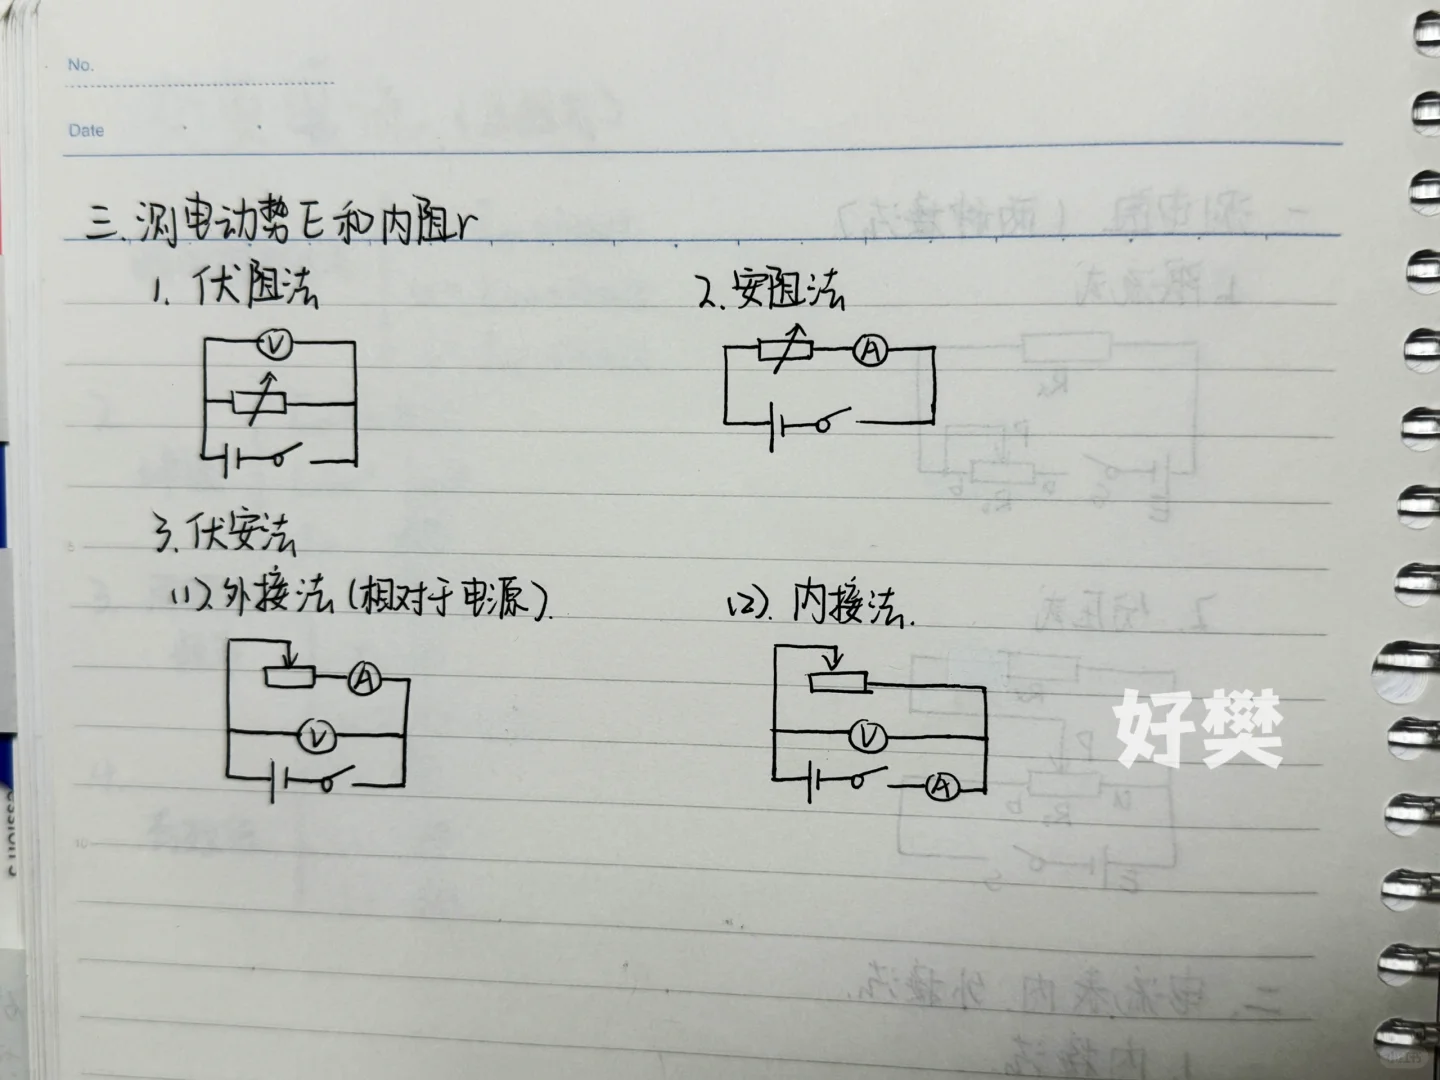 No.
Date
三.测电动势E和内阻r
1. 伏阻法
2. 安阻法
V
A
3. 伏安法
(1).外接法(相对于电源).
(2). 内接法.
A
V
V
A
好樊